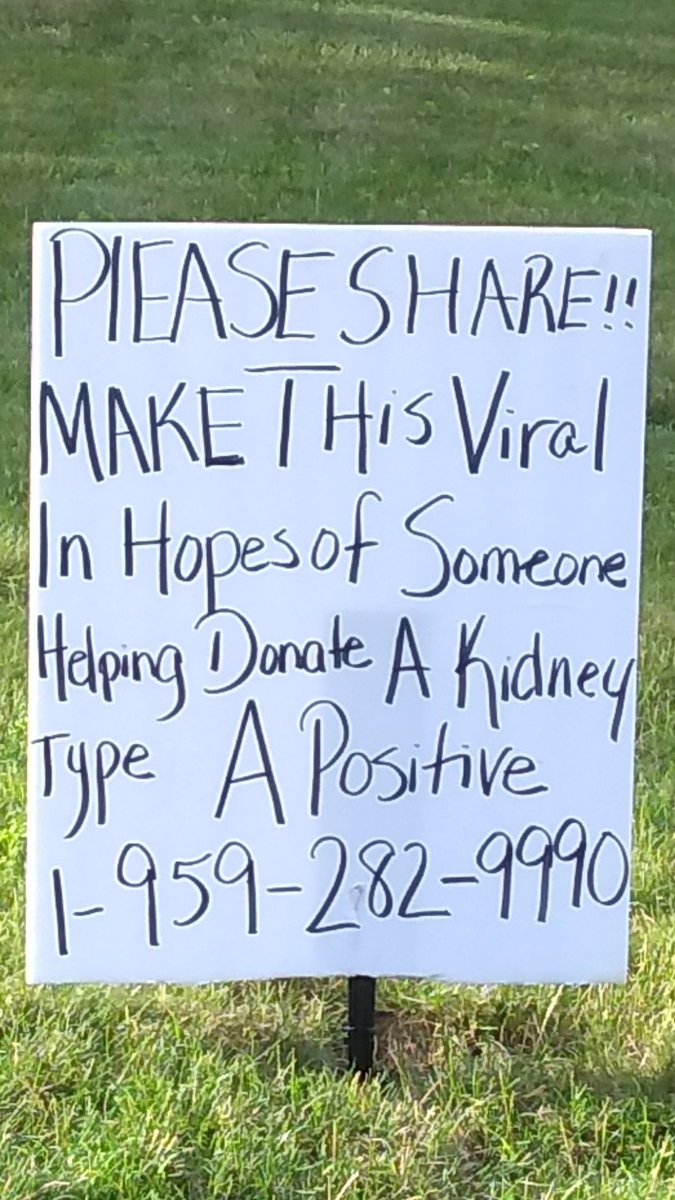 PlEASE SHARE!!
MAKE THiS Viral
In Hopes of Someone
Helping Donate A Kidney
Type A Positive
1-959-282-9990